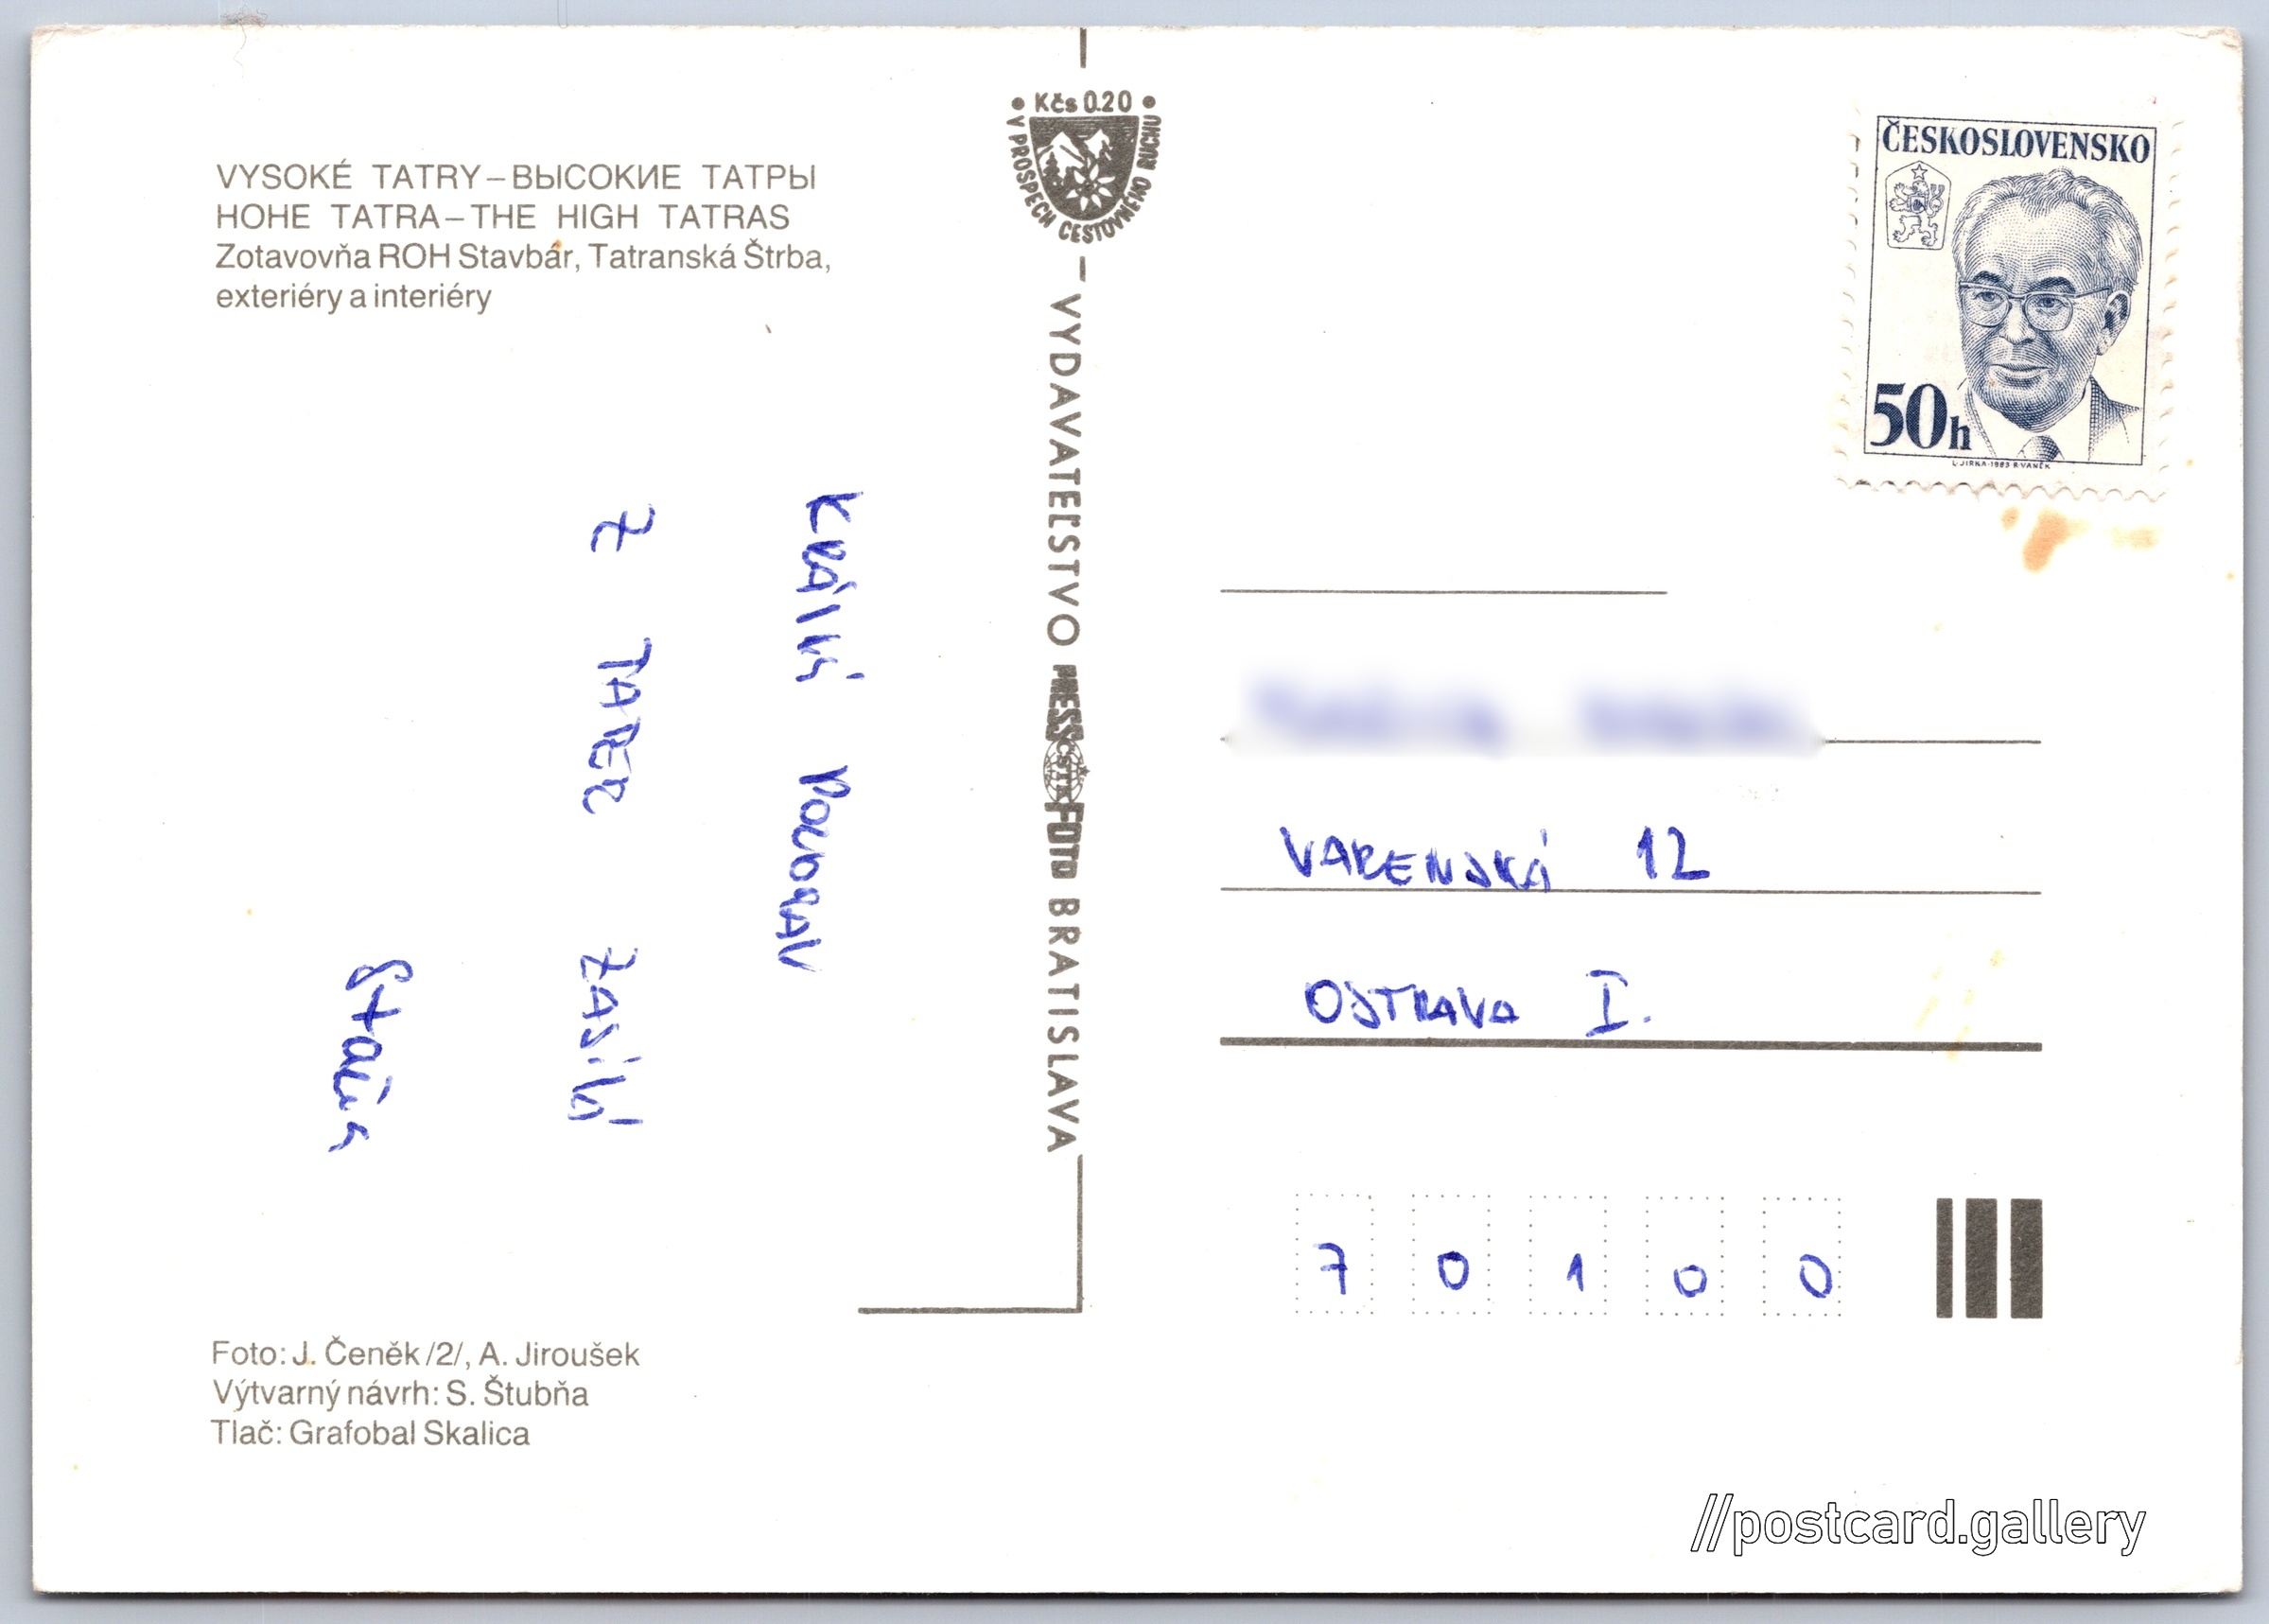 VYSOKÉ TATRY – ВЫСОКИЕ ТАТРЫ
HOHE TATRA – THE HIGH TATRAS
Zotavovňa ROH Stavbár, Tatranská Štrba,
exteriéry a interiéry
KRÁTKÝ POZDRAV
Z TATER ZASÍLÁ
Foto: J. Čeněk /2/, A. Jiroušek
Výtvarný návrh: S. Štubňa
Tlač: Grafobal Skalica
Kčs 0.20
V PROSPECH CESTOVNÉHO RUCHU
– VYDAVATEĽSTVO PRESSFOTO BRATISLAVA
ČSTK
ČESKOSLOVENSKO
50h
L. JIRKA - 1983 R. VANĚK
VARENSKÁ 12
OSTRAVA I.
7 0 1 0 0
//postcard.gallery